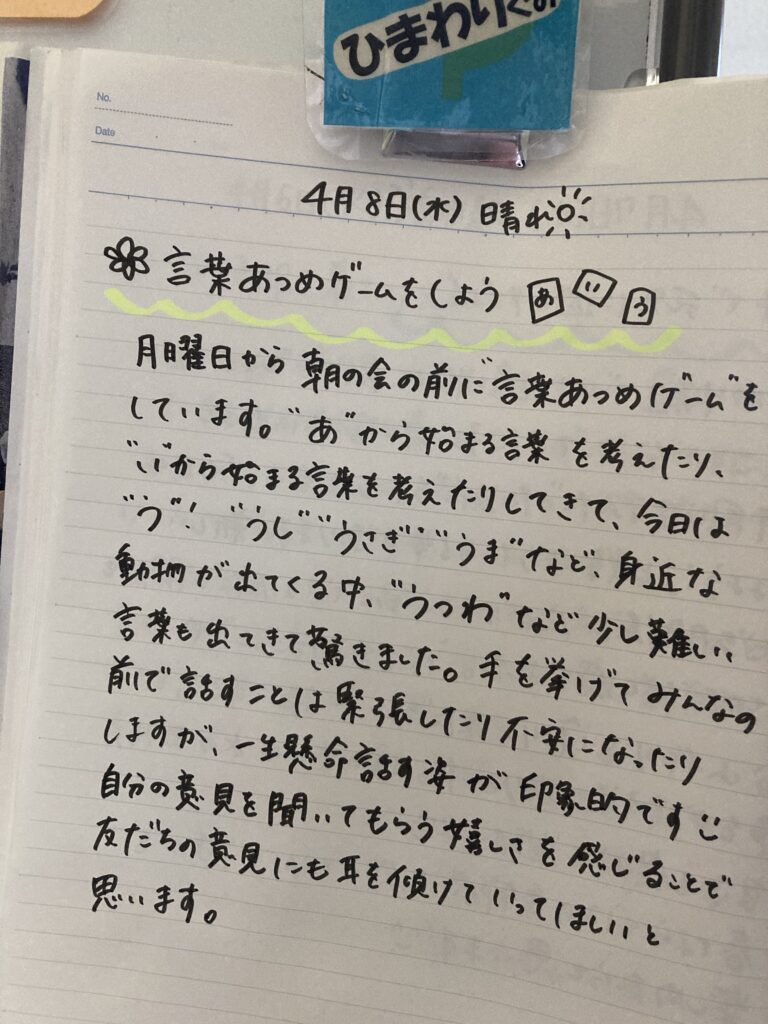 ひまわりぐみ
No.
Date
4月8日(水) 晴れ
言葉あつめゲームをしよう あ い う
月曜日から朝の会の前に"言葉あつめゲーム"を
しています。"あ"から始まる言葉を考えたり、
"い"から始まる言葉を考えたりしてきて、今日は
"う"! "うし""うさぎ""うま"など、身近な
動物が出てくる中、"うつわ"など少し難しい
言葉も出てきて驚きました。手を挙げてみんなの
前で話すことは緊張したり不安になったり
しますが、一生懸命話す姿が印象的です
自分の意見を聞いてもらう嬉しさを感じることで
友だちの意見にも耳を傾けていってほしいと
思います。